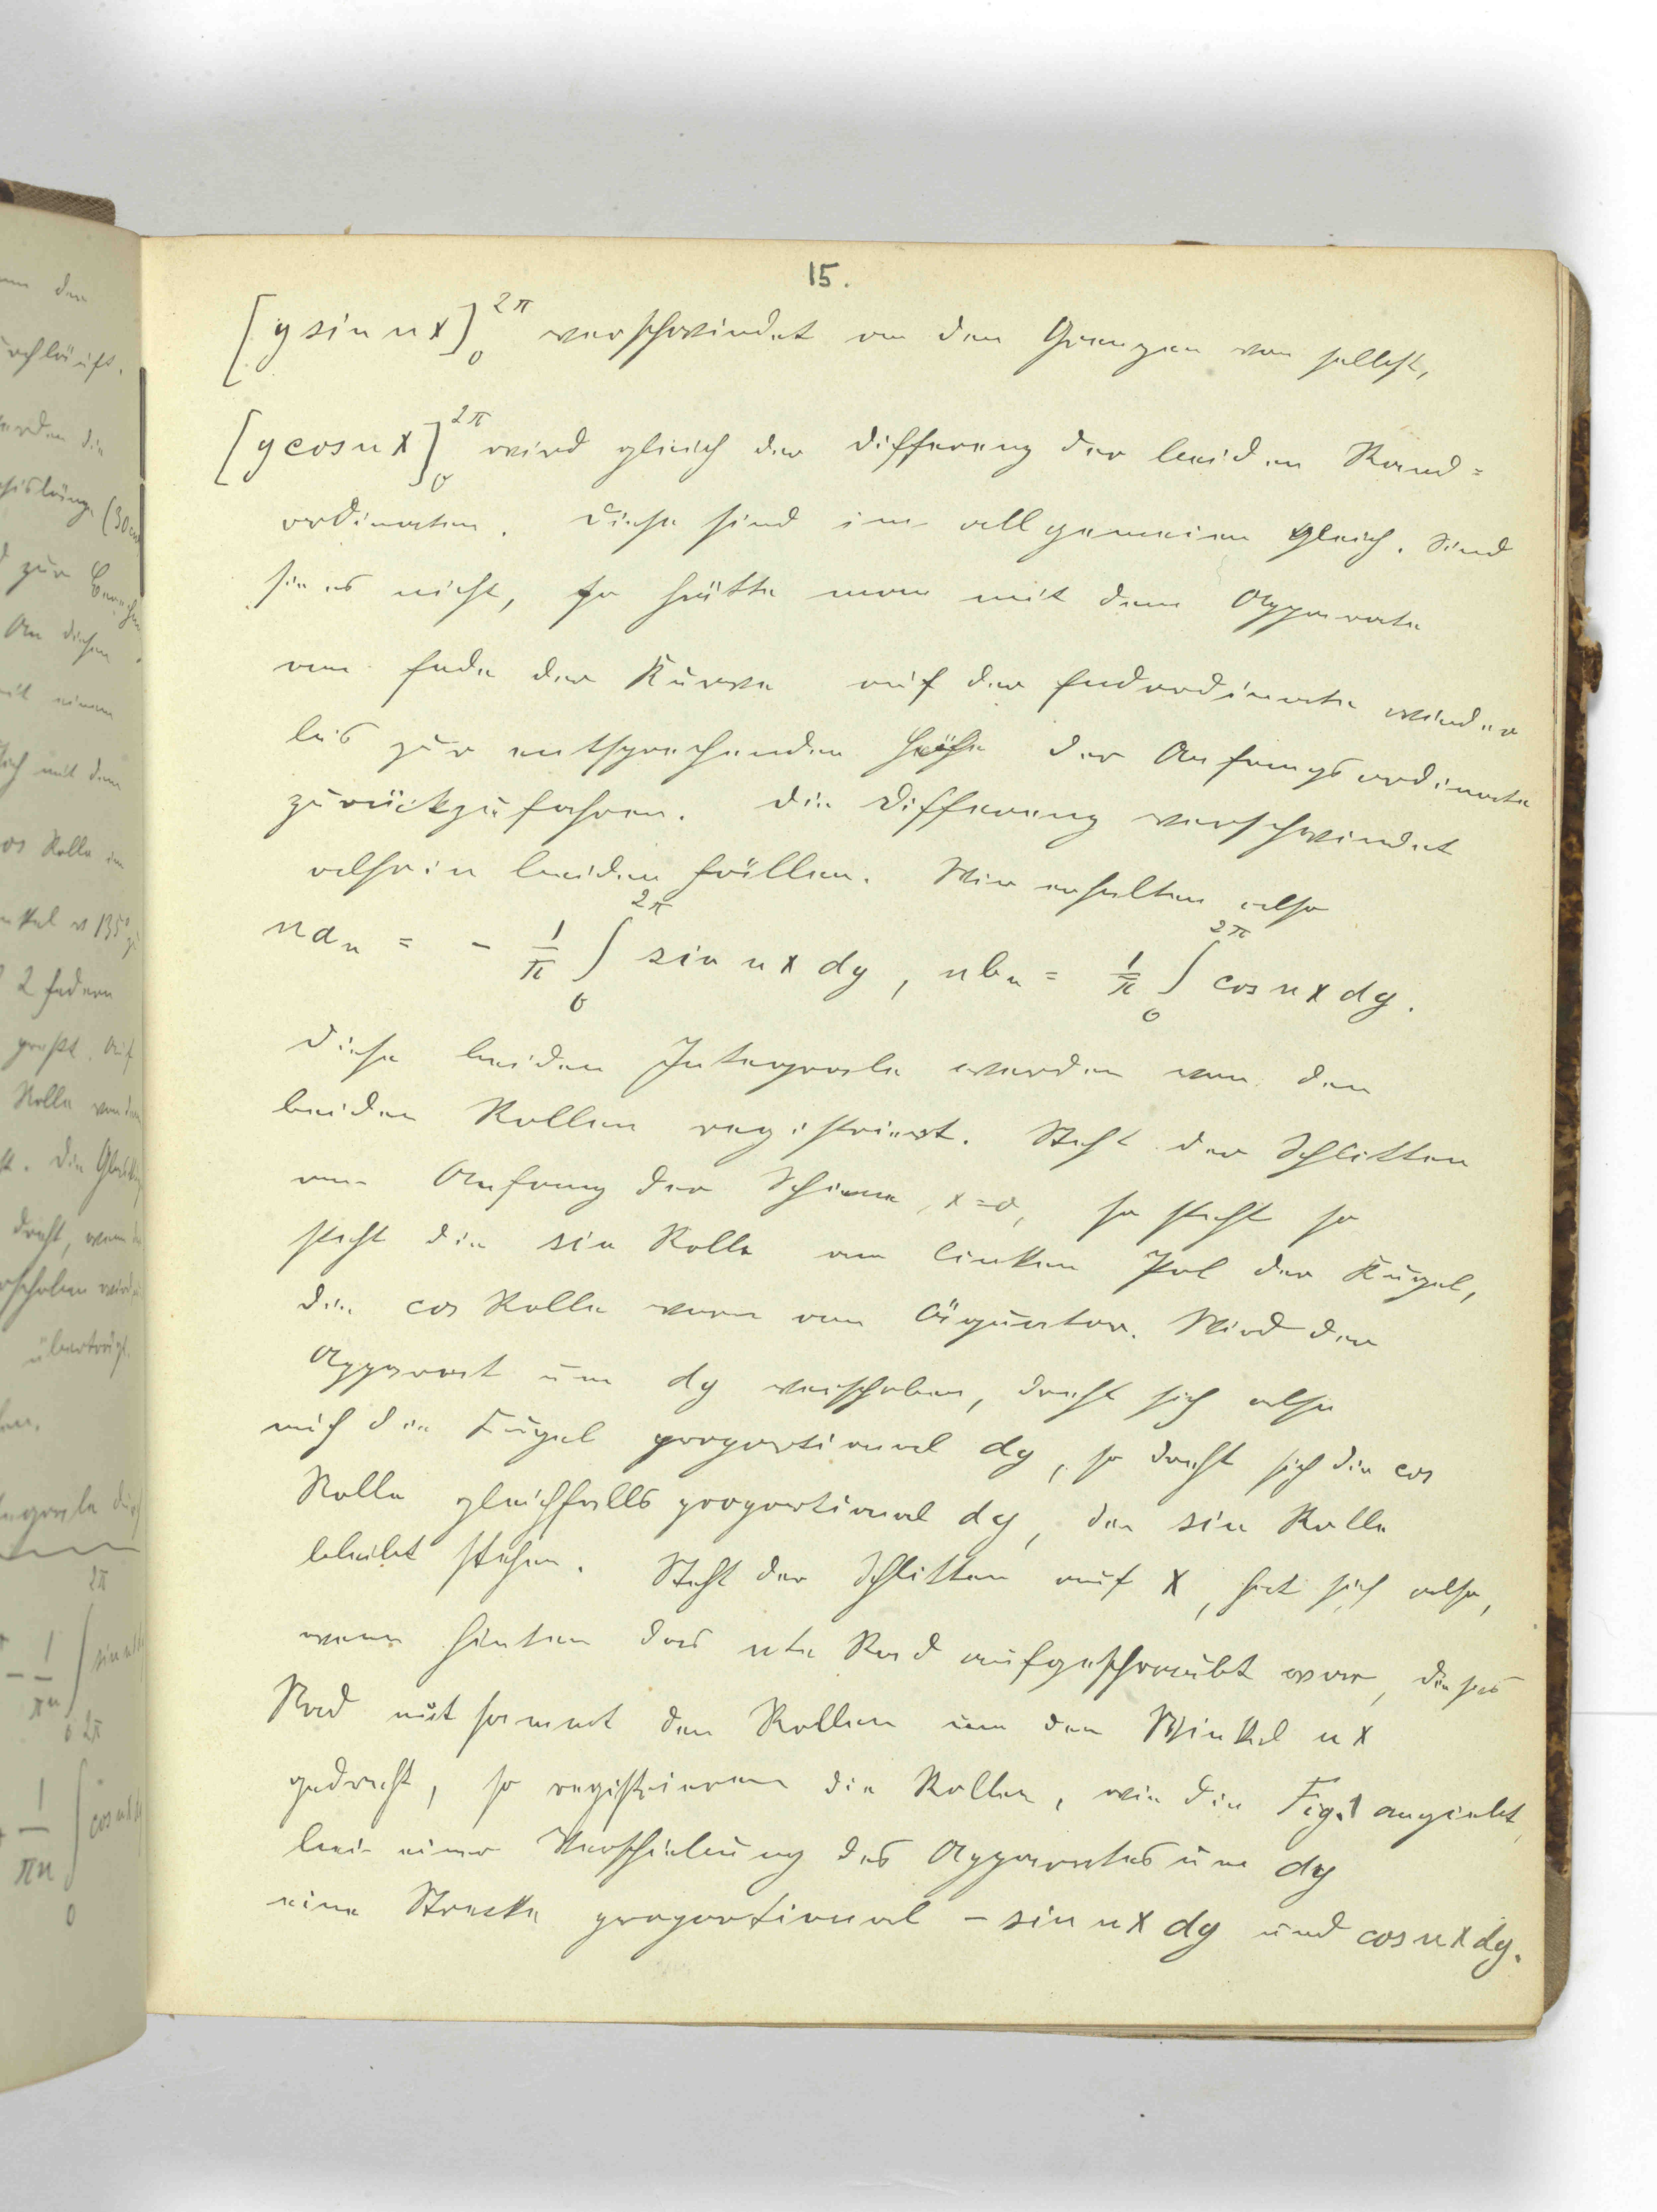 15.
[y sin nx]₀^2π verschwindet an den Grenzen von selbst,
[y cos nx]₀^2π wird gleich der Differenz der beiden Rand=
ordinaten. Diese sind im allgemeinen gleich. Sind
sie es nicht, so hätte man mit dem Apparate
am Ende der Kurve auf der Endordinate wieder
bis zur entsprechenden Höhe der Anfangsordinate
zurückzufahren. Die Differenz verschwindet
also in beiden Fällen. Wir erhalten also
n aₙ = - 1/π ∫₀^2π sin nx dy, n bₙ = 1/π ∫₀^2π cos nx dy.
Diese beiden Integrale werden von den
beiden Rollen registriert. Steht der Schlitten
am Anfang der Schiene, x=0, so steht so
steht die sin Rolle am linken Pol der Kugel,
die cos Rolle vorn am Äquator. Wird der
Apparat um dy verschoben, dreht sich also
auch die Kugel proportional dy, so dreht sich die cos
Rolle gleichfalls proportional dy, die sin Rolle
bleibt stehen. Steht der Schlitten auf x, hat sich also,
wenn hinten das nte Rad aufgeschraubt war, dieses
Rad mitsammt den Rollen um den Winkel nx
gedreht, so registrieren die Rollen, wie die Fig. 1 angiebt,
bei einer Verschiebung des Apparates um dy
eine Strecke proportional - sin nx dy und cos nx dy.